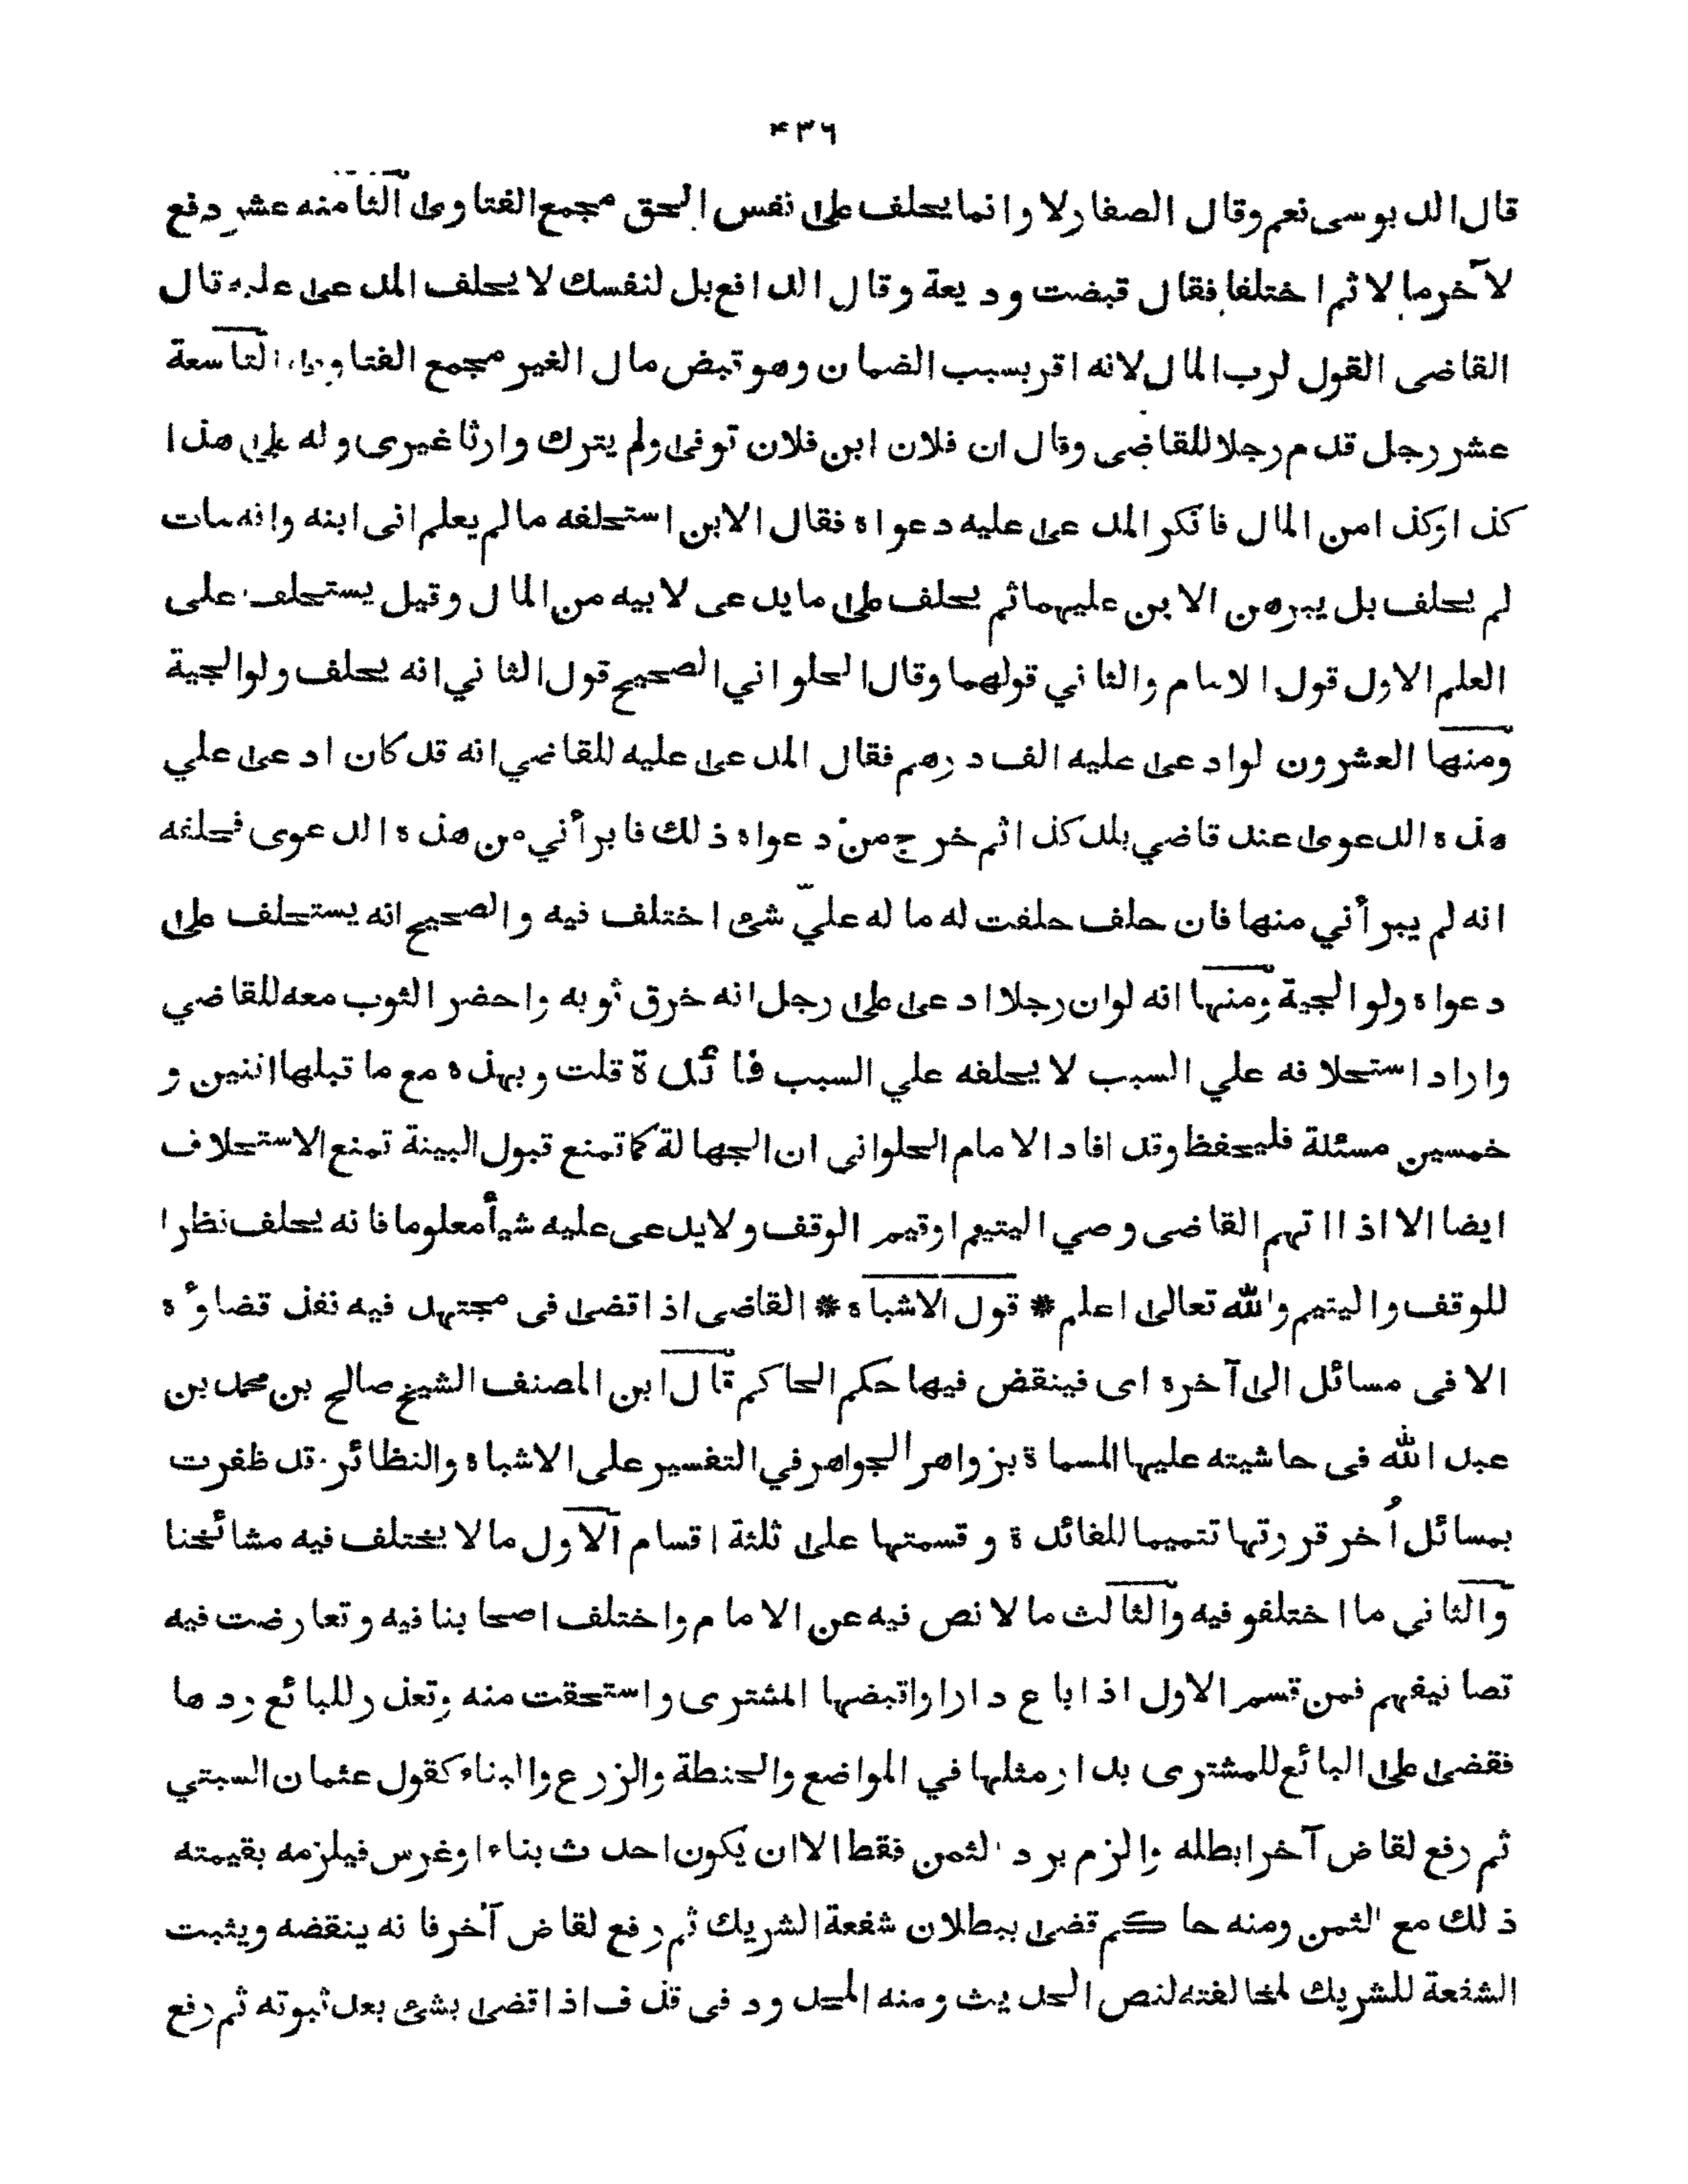 ۴۳۶
قال الدبوسى نعم وقال الصفار لا وانما يحلف على نفس الحق مجمع الفتاوى الثامنه عشر دفع
لآخر مالا ثم اختلفا فقال قبضت وديعة وقال الدافع بل لنفسك لا يحلف المدعى عليه قال
القاضى القول لرب المال لانه اقر بسبب الضمان وهو قبض مال الغير مجمع الفتاوى التاسعة
عشر رجل قدم رجلا للقاضى وقال ان فلان ابن فلان توفى ولم يترك وارثا غيرى وله على هذا
كذا وكذا من المال فانكر المدعى عليه دعواه فقال الابن استحلفه مالم يعلم انى ابنه وانه مات
لم يحلف بل يبرهن الابن عليهما ثم يحلف على ما يدعى لابيه من المال وقيل يستحلف على
العلم الاول قول الامام والثاني قولهما وقال الحلواني الصحيح قول الثاني انه يحلف ولوالجية
ومنها العشرون لو ادعى عليه الف درهم فقال المدعى عليه للقاضي انه قد كان ادعى علي
هذه الدعوى عند قاضي بلد كذا ثم خرج من دعواه ذلك فابرأني من هذه الدعوى فحلفه
انه لم يبرأني منها فان حلف حلفت له ما له عليّ شئ اختلف فيه والصحيح انه يستحلف على
دعواه ولوالجية ومنها انه لو ان رجلا ادعى على رجل انه خرق ثوبه واحضر الثوب معه للقاضي
واراد استحلافه علي السبب لا يحلفه علي السبب فائدة قلت وبهذه مع ما قبلها اثنين و
خمسين مسئلة فليحفظ وقد افاد الامام الحلوانى ان الجهالة كما تمنع قبول البينة تمنع الاستحلاف
ايضا الا اذا اتهم القاضى وصي اليتيم او قيم الوقف ولا يدعى عليه شيأ معلوما فانه يحلف نظرا
للوقف واليتيم والله تعالى اعلم * قول الاشباه * القاضى اذا قضى فى مجتهد فيه نفذ قضاؤه
الا فى مسائل الى آخره اى فينقض فيها حكم الحاكم قال ابن المصنف الشيخ صالح بن محمد بن
عبد الله فى حاشيته عليها المسماة بزواهر الجواهر في التفسير على الاشباه والنظائر قد ظفرت
بمسائل اُخر قررتها تتميما للفائدة و قسمتها على ثلثة اقسام الاول ما لا يختلف فيه مشائخنا
والثاني ما اختلفو فيه والثالث ما لا نص فيه عن الامام واختلف اصحابنا فيه وتعارضت فيه
تصانيفهم فمن قسم الاول اذا باع دارا واقبضها المشترى واستحقت منه وتعذر للبائع ردها
فقضى على البائع للمشترى بدار مثلها في المواضع والحنطة والزرع والبناء كقول عثمان السبتي
ثم رفع لقاض آخر ابطله والزم برد الثمن فقط الا ان يكون احدث بناء او غرس فيلزمه بقيمته
ذلك مع الثمن ومنه حاكم قضى ببطلان شفعة الشريك ثم رفع لقاض آخر فانه ينقضه ويثبت
الشفعة للشريك لمخالفته لنص الحديث ومنه المحدود فى قذف اذا قضى بشئ بعد ثبوته ثم رفع